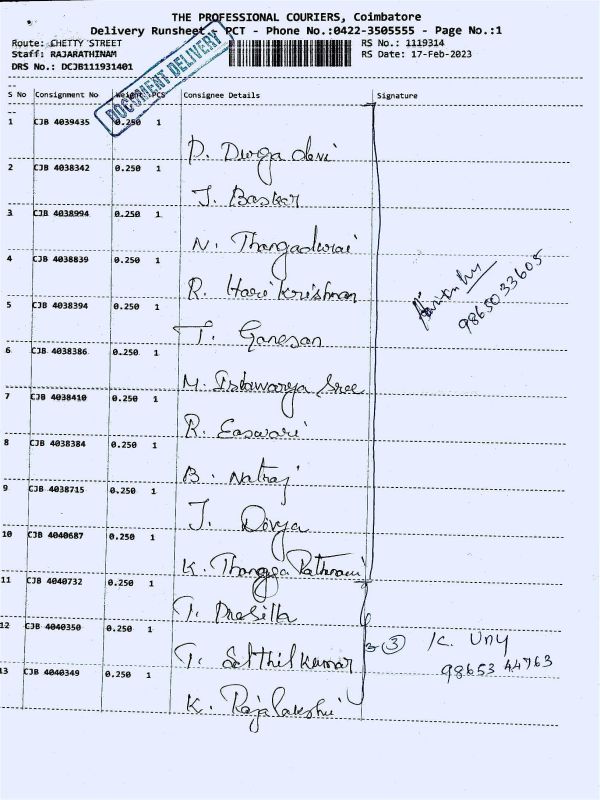 THE PROFESSIONAL COURIERS, Coimbatore
Delivery Runsheet - PCT - Phone No.:0422-3505555 - Page No.:1
Route: CHETTY STREET
RS No.: 1119314
Staff: RAJARATHINAM
RS Date: 17-Feb-2023
DRS No.: DCJB111931401
DOCUMENT DELIVERY
S No Consignment No Weight PCS Consignee Details Signature
1 CJB 4039435 0.250 1
D. Durga devi
2 CJB 4038342 0.250 1
J. Baskar
3 CJB 4038994 0.250 1
N. Thangadurai
4 CJB 4038839 0.250 1
R. Hari Krishnan
9865033605
5 CJB 4038394 0.250 1
T. Ganesan
6 CJB 4038386 0.250 1
M. Sree
7 CJB 4038410 0.250 1
R. Easwari
8 CJB 4038384 0.250 1
B. Natraj
9 CJB 4038715 0.250 1
J. Divya
10 CJB 4040687 0.250 1
K. Thanga
11 CJB 4040732 0.250 1
T.
12 CJB 4040350 0.250 1
3 K.
T. 98653 44763
13 CJB 4040349 0.250 1
K.